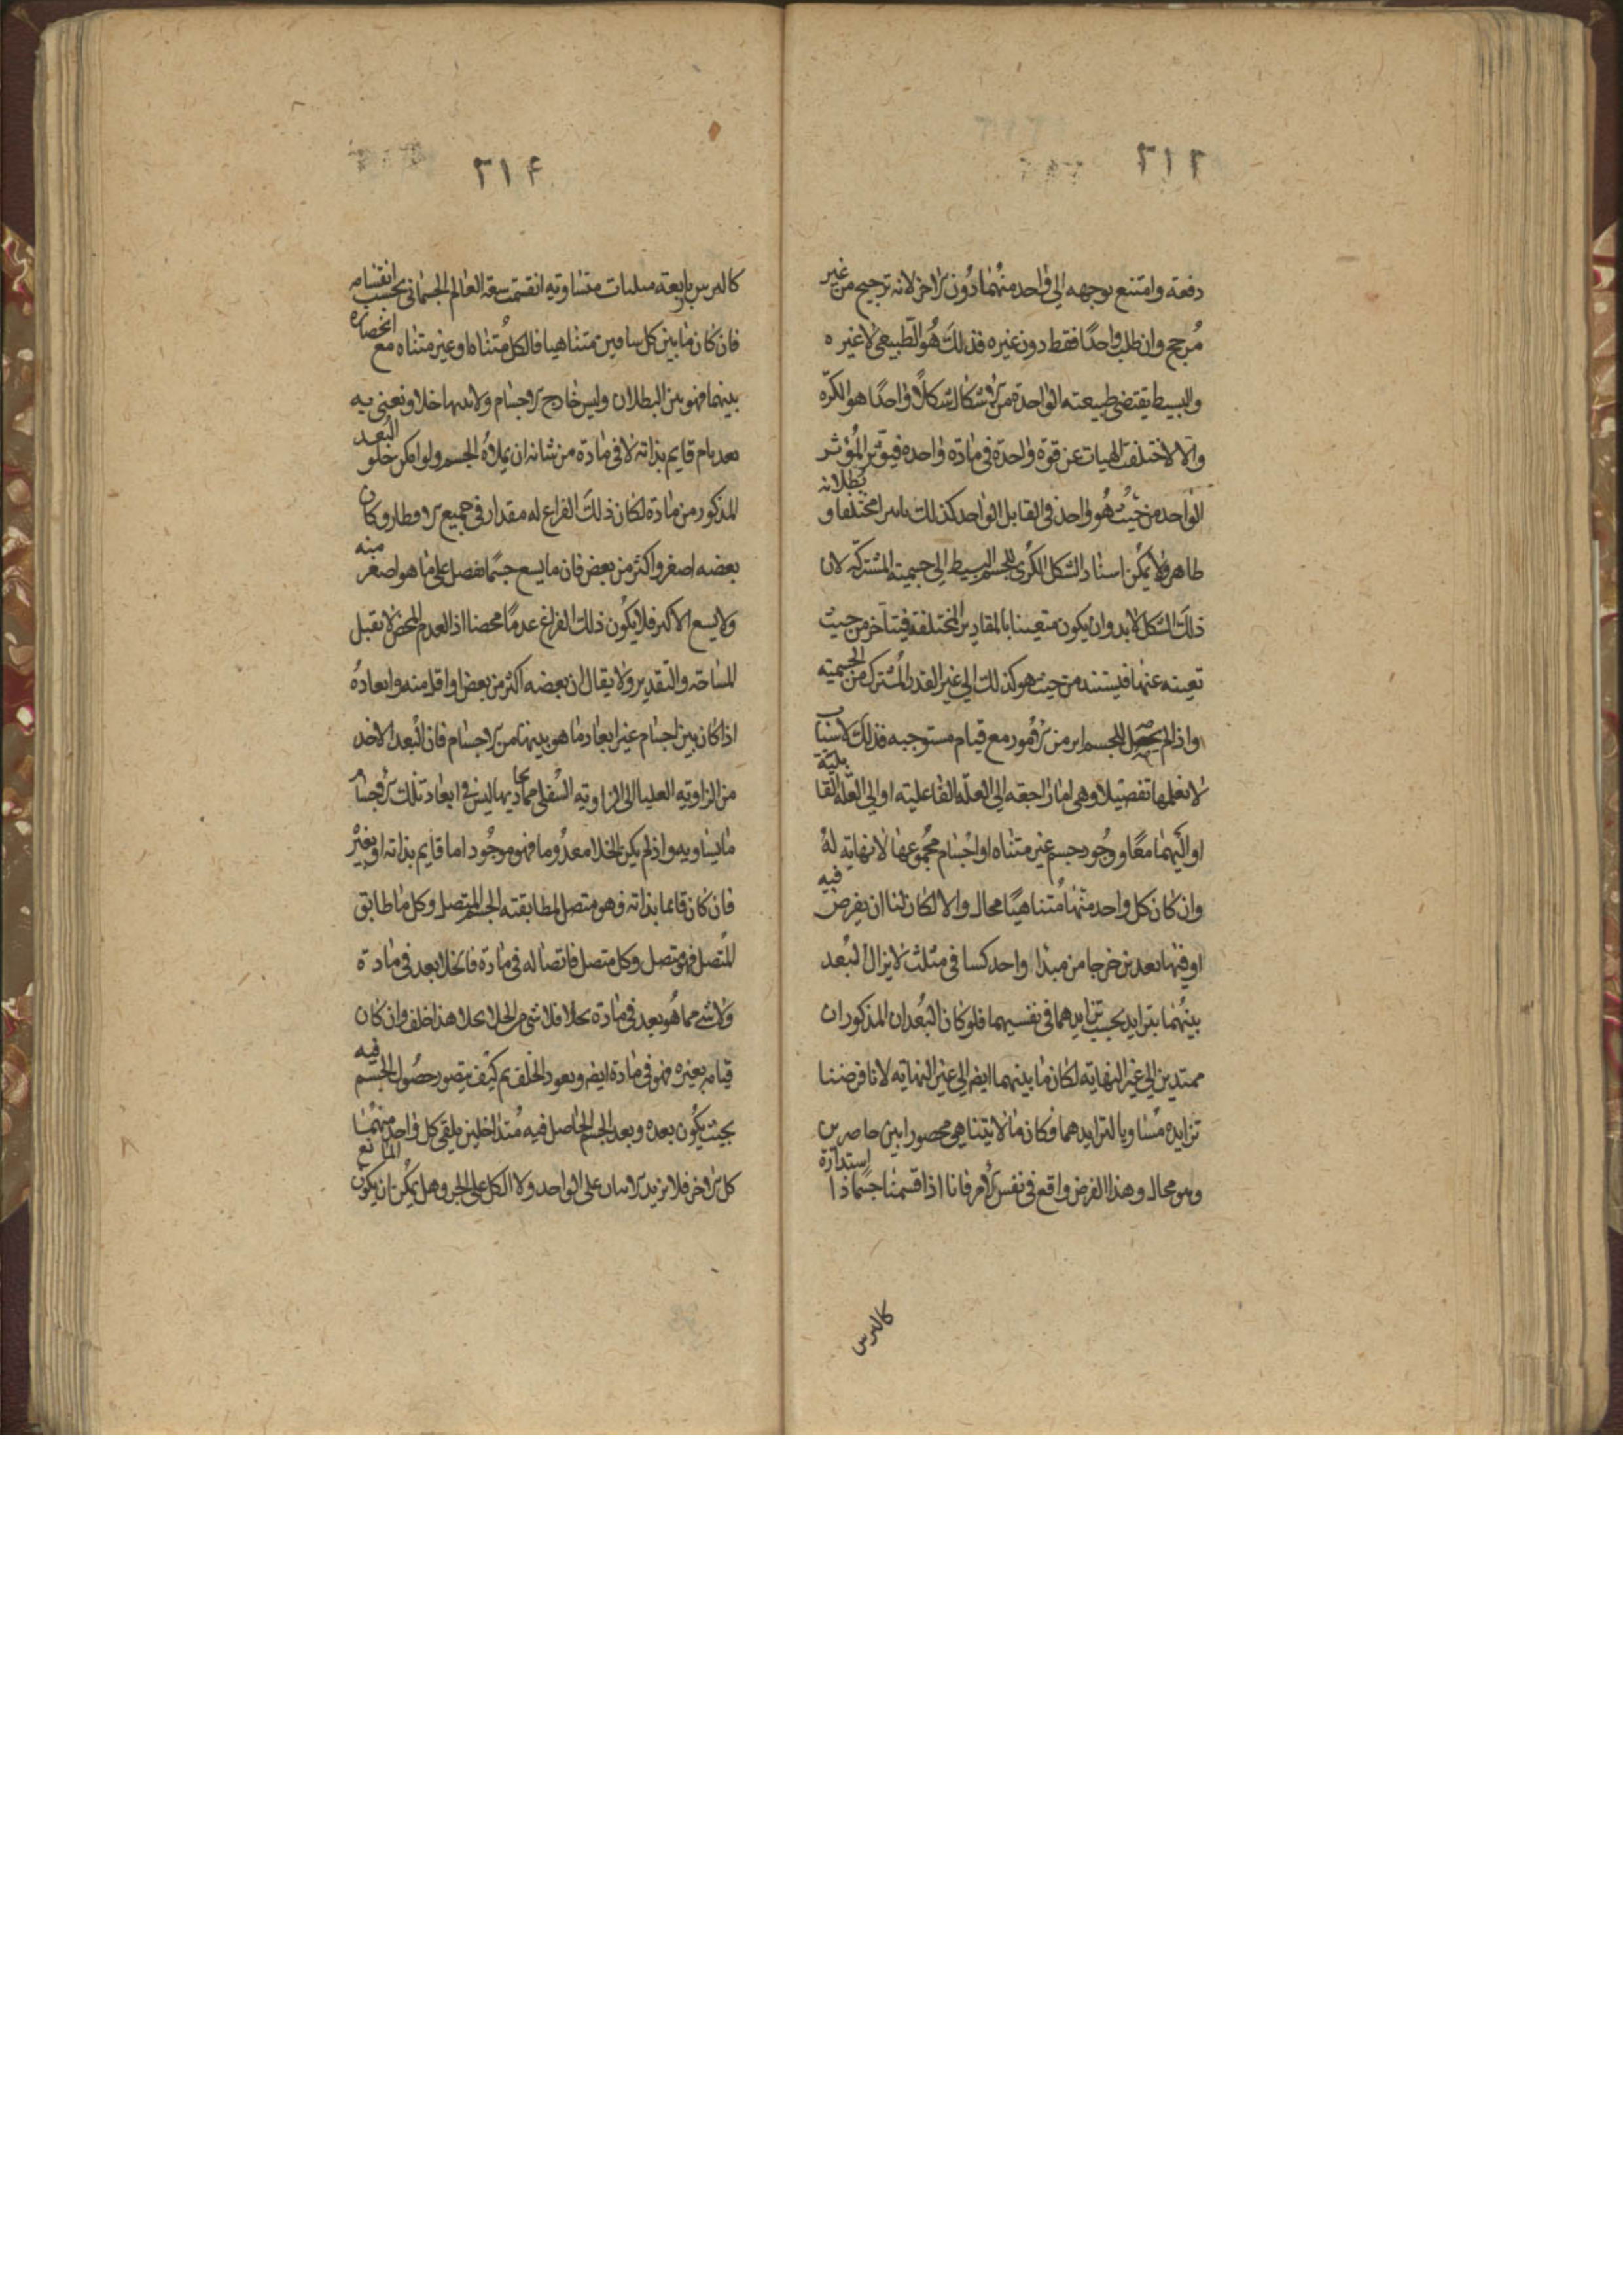 ٣١٣
دفعة وامتنع توجهه الى واحد منهما دون الاخر لانه ترجيح من غير
مرجح وان طلب واحدًا فقط دون غيره فذلك هو الطبيعي لا غيره
والبسيط يقتضي طبيعته الواحدة من الاشكال شكلاً واحدًا هو الكرة
والا لاختلف الهيات عن قوة واحدة في مادة واحدة فيؤثر المؤثر
الواحد من حيث هو واحد في القابل الواحد كذلك تاثيرا مختلفا و بطلانه
ظاهر ولا يمكن اسناد الشكل الكري للجسم البسيط الى جسميته المشتركة لان
ذلك الشكل لابد وان يكون متعينا بالمقادير المختلفة فيتاخر من حيث
تعينه عنها فيستند من حيث هو كذلك الى غير القدر المشترك من الجسمية
واذا لم يحصل للجسم امر من الامور مع قيام مستوجبه فذلك لاسباب
لا نعلمها تفصيلا وهي اما راجعة الى العلة الفاعلية او الى العلة القابلية
او اليهما معًا ووجود جسم غير متناه او اجسام مجموعها لا نهاية له
وان كان كل واحد منها متناهيًا محال والا لكان لنا ان نفرض فيه
او فيها بعدين خرجا من مبدا واحد كساقي مثلث لا يزال البعد
بينهما يتزايد بحسب تزايدهما في نفسيهما فلو كان البعدان المذكوران
ممتدين الى غير النهاية لكان ما بينهما ايضا الى غير النهاية لانا فرضنا
تزايده مساويا لتزايدهما فكان ما لا يتناهى محصورا بين حاصرين
وهو محال وهذا الفرض واقع في نفس الامر فانا اذا قسمنا جسما ذا استدارة
كالترس
٣١۴
كالترس باربعة مثلثات متساوية انقسمت سعة العالم الجسماني بحسب انقسامه
فان كان ما بين كل ساقين متناهيا فالكل متناه او غير متناه مع انحصاره
بينهما فهو بين البطلان وليس خارج الاجسام ولا بينها خلا ونعني به
بعد تام قايم بذاته لا في مادة من شانه ان يملاه الجسم ولو امكن خلو البعد
المذكور من مادة لكان ذلك الفراغ له مقدار في جميع الاقطار وكان
بعضه اصغر واكثر من بعض فان ما يسع جسما يفضل على ما هو اصغر منه
ولا يسع الاكبر فلا يكون ذلك الفراغ عدمًا محضا اذ العدم المحض لا يقبل
المساحة والتقدير ولا يقال ان بعضه اكثر من بعض او اقل منه وابعاده
اذا كان بين اجسام غير ابعاد ما هو بينها من الاجسام فان البعد الاخذ
من الزاوية العليا الى الزاوية السفلى مما يحاذيها ليس في ابعاد تلك الاجسام
ما يساويه واذ لم يكن الخلا معدوما فهو موجود اما قايم بذاته او بغيره
فان كان قايما بذاته فهو متصل لمطابقته الجسم المتصل وكل ما طابق
المتصل فهو متصل وكل متصل فاتصاله في مادة فالخلا بعد في مادة
ولا شي مما هو بعد في مادة بخلا فلا شي من الخلا بخلا هذا خلف وان كان
قيامه بغيره فهو في مادة ايضا ويعود الخلف ثم كيف يتصور حصول الجسم فيه
بحيث يكون بعده وبعد الجسم الحاصل فيه متداخلين يلقي كل واحد منهما
كل الاخر فلا يزيد الاثنان على الواحد ولا الكل على الجزء وهل يمكن ان يكون المانع